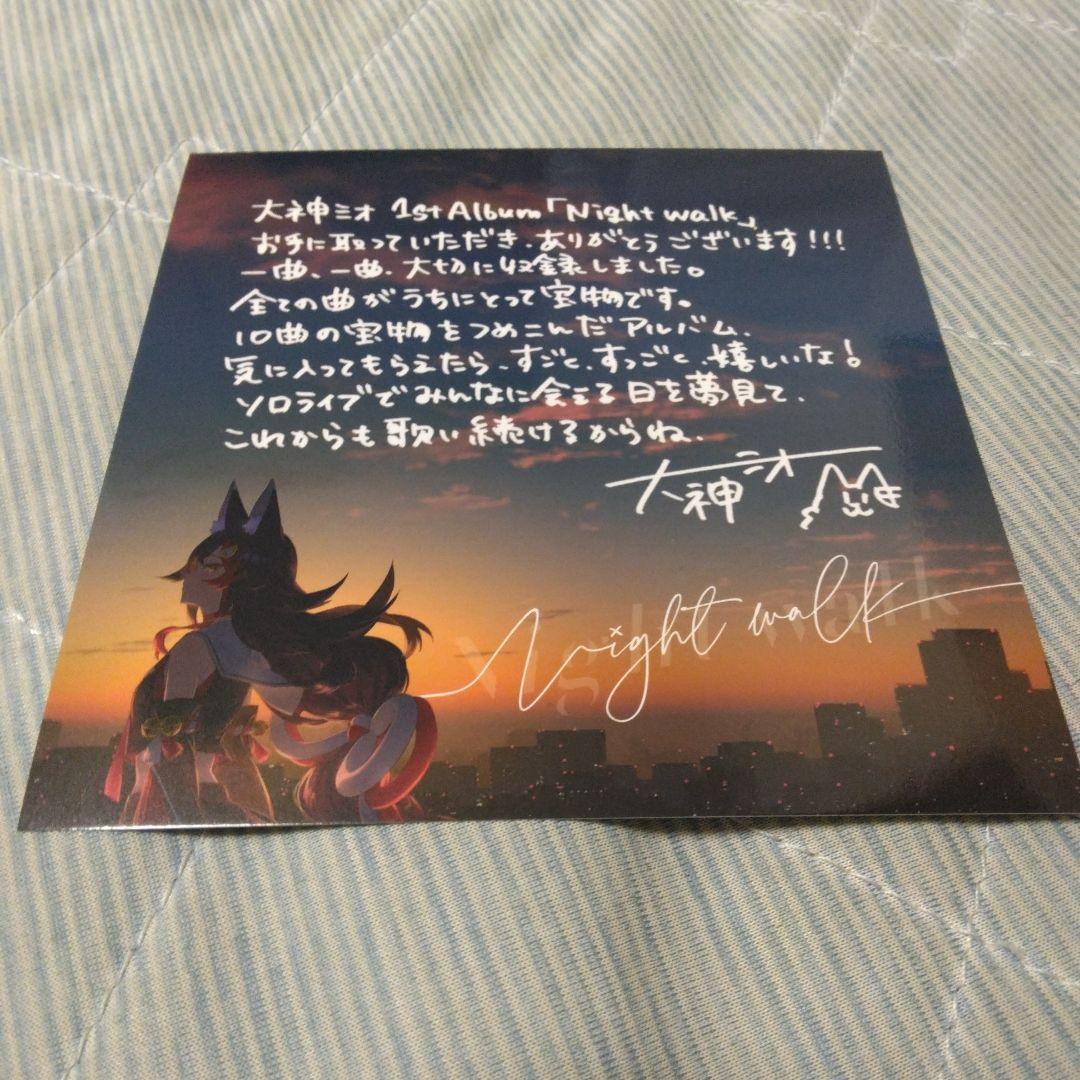 大神ミオ 1st Album「Night walk」
お手に取っていただき、ありがとうございます!!!
一曲、一曲、大切に収録しました。
全ての曲がうちにとって宝物です。
10曲の宝物をつめこんだアルバム、
気に入ってもらえたら、すごく、すっごく、嬉しいな!
ソロライブでみんなに会える日を夢見て、
これからも歌い続けるからね、
大神ミオ
Night walk
Night walk